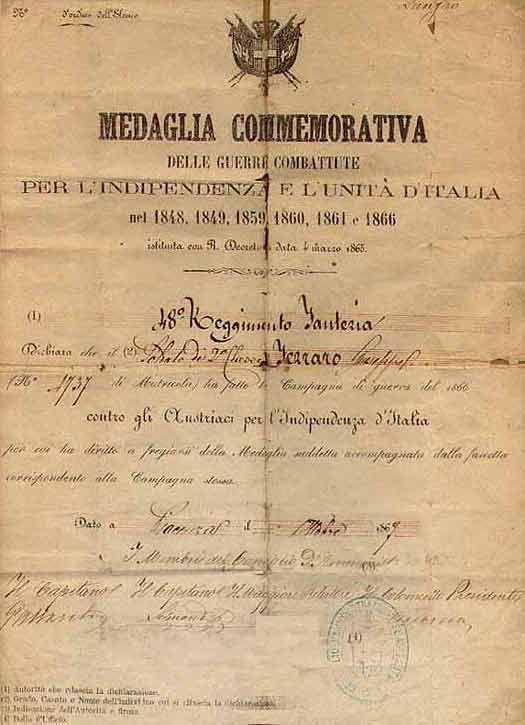 N° d'ordine dell'Elenco
Lungro
MEDAGLIA COMMEMORATIVA
DELLE GUERRE COMBATTUTE
PER L'INDIPENDENZA E L'UNITÀ D'ITALIA
nel 1848, 1849, 1859, 1860, 1861 e 1866
istituita con R. Decreto in data 4 marzo 1865.
(1) 48° Reggimento Fanteria
Dichiara che il (2) Soldato di 2a Classe Ferraro Giuseppe
(N° 1737 di Matricola) ha fatto la Campagna di guerra del 1866
contro gli Austriaci per l'Indipendenza d'Italia
per cui ha diritto a fregiarsi della Medaglia suddetta accompagnata dalla fascetta
corrispondente alla Campagna stessa.
Dato a il 1867
I Membri del Consiglio d'Amministrazione
Il Capitano Il Capitano Il Maggiore Relatore Il Colonnello Presidente
(4)
(1) Autorità che rilascia la dichiarazione.
(2) Grado, Casato e Nome dell'individuo cui si rilascia la dichiarazione.
(3) Indicazione dell'Autorità e firma.
(4) Bollo d'Ufficio.